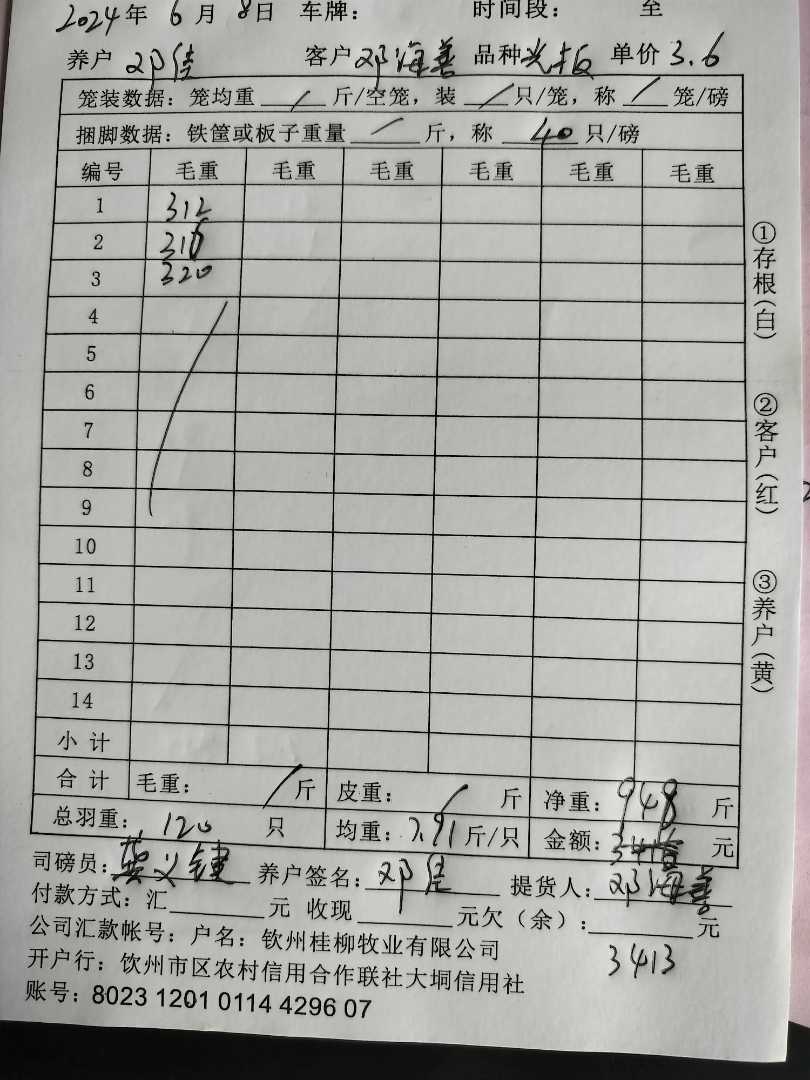 2024年 6月 8日 车牌： 时间段： 至
养户 邓佳 客户 邓海善 品种 光板 单价 3.6
笼装数据：笼均重 / 斤/空笼，装 / 只/笼，称 / 笼/磅
捆脚数据：铁筐或板子重量 / 斤，称 40 只/磅
编号 毛重 毛重 毛重 毛重 毛重 毛重
1 312
2 316
3 320
4
5
6
7
8
9
10
11
12
13
14
小计
合计 毛重： / 斤 皮重： / 斤 净重：948 斤
总羽重： 120 只 均重：7.91斤/只 金额： 元
司磅员： 养户签名：邓佳 提货人：邓海善
付款方式：汇 元 收现 元欠（余）： 元
3413
公司汇款帐号：户名：钦州桂柳牧业有限公司
开户行：钦州市区农村信用合作联社大垌信用社
账号：8023 1201 0114 4296 07
①存根（白）
②客户（红）
③养户（黄）